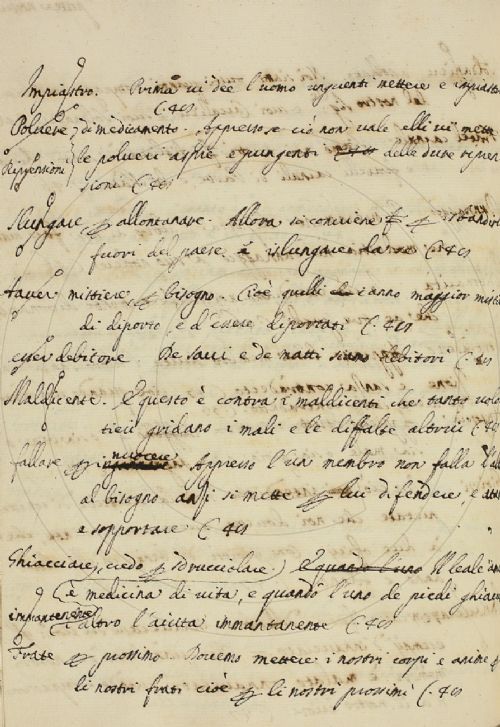 Impiastro. Prima vi dee l'uomo unguenti mettere e impiastri
C. 4cs
Polvere di medicamento. Appresso, se ciò non vale elli vi mette
Riprensioni le polveri aspre e pungenti delle dure ripren
sioni C. 4cs
Slungare p allontanare. Allora si conviene
fuori del paese islungare da se C. 4cs
aver mistiere p bisogno. Cioè quelli c'anno maggior misti
di diporto, e d'essere diportati C. 4cs
esser debitore. De savi e de matti siamo debitori C. 4cs
Maldicente. E questo è contra i maldicenti che tanto volo
tieri gridano i mali e le diffalte altrui C. 4cs
fallare p nuocere. Appresso l'un membro non falla l'al
al bisogno anzi si mette p lui difendere, e
e sopportare C. 4cs
Ghiacciare, credo p sdrucciolare. E quando l'uno Il leale
è medicina di vita, e quando l'uno de piedi ghiac
immantenente l'altro l'aiuta immantanente C. 4cs
Frate p prossimo Dovemo mettere i nostri corpi e anime p
li nostri frati cioè p li nostri prossimi C. 4cs